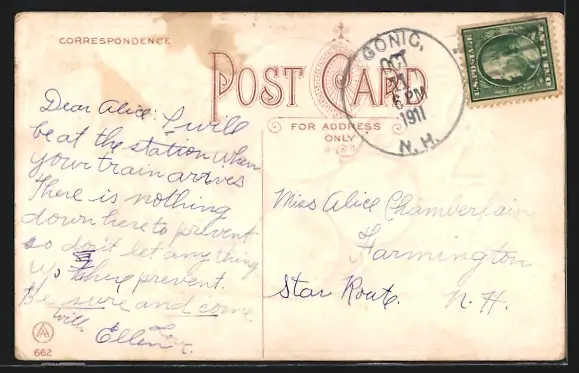 CORRESPONDENCE
POST CARD
FOR ADDRESS
ONLY
GONIC,
OCT
21
6 PM
1911
N. H.
U.S. POSTAGE
Dear Alice: I will
be at the station when
your train arrives
There is nothing
down here to prevent
so don't let anything
up there prevent.
Be sure and come
will
Love
Ellen
Miss Alice Chamberlain
Farmington
Star Route. N. H.
AA
662